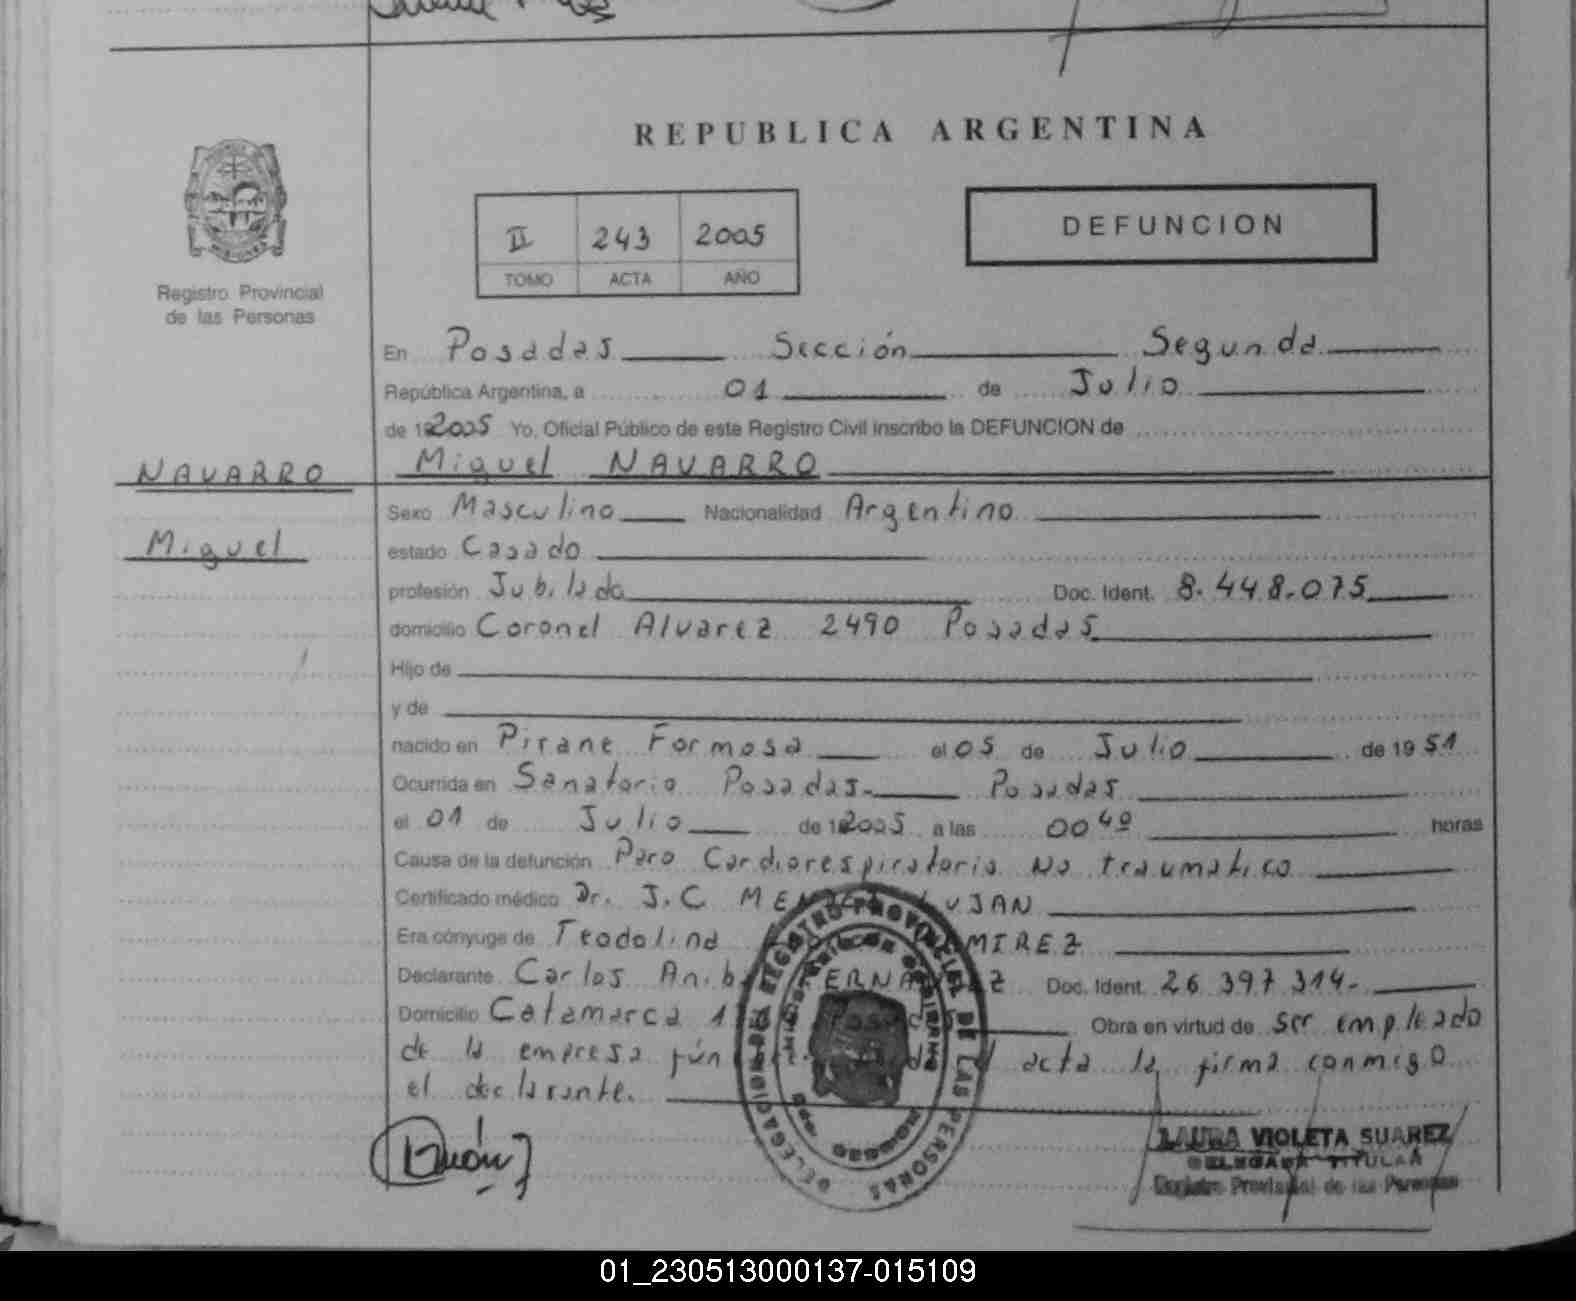 REPUBLICA ARGENTINA
DEFUNCION
II 243 2005
TOMO ACTA AÑO
Registro Provincial
de las Personas
En Posadas Sección Segunda
República Argentina, a 01 de Julio
de 192005 Yo, Oficial Público de este Registro Civil inscribo la DEFUNCION de
NAVARRO Miguel NAVARRO
Sexo Masculino Nacionalidad Argentino
Miguel estado Casado
profesión Jubilado Doc. Ident. 8.448.075
domicilio Coronel Alvarez 2490 Posadas
Hijo de
y de
nacido en Pirane Formosa el 05 de Julio de 1951
Ocurrida en Sanatorio Posadas- Posadas
el 01 de Julio de 192005 a las 00 40 horas
Causa de la defunción Paro Cardiorespiratorio No traumatico
Certificado médico Dr. J.C LUJAN
Era cónyuge de Teodolina
Declarante Carlos Doc. Ident. 26 397 314-
Domicilio Catamarca Obra en virtud de ser empleado
de la empresa acta la firma conmigo
el declarante.
DELEGACION DEL REGISTRO PROVINCIAL DE LAS PERSONAS
LAURA VIOLETA SUAREZ
DELEGADA TITULAR
Registro Provincial de las Personas
01_230513000137-015109